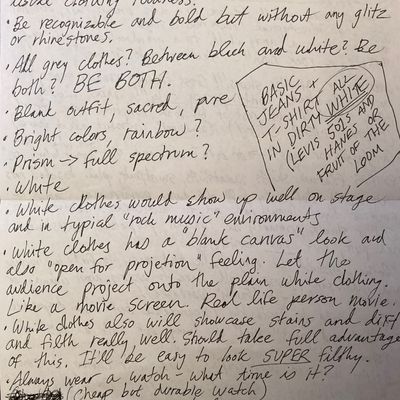 usual clothing
• Be recognizable and bold but without any glitz
or rhinestones.
• All grey clothes? Between black and white? Be
both? BE BOTH.
• Blank outfit, sacred, pure
• Bright colors, rainbow?
• Prism → full spectrum?
• White
BASIC
JEANS +
T-SHIRT
IN DIRTY
ALL
WHITE
(LEVIS 501S AND
HANES OR
FRUIT OF THE
LOOM
• White clothes would show up well on stage
and in typical "rock music" environments
• White clothes has a "blank canvas" look and
also "open for projetion" feeling. Let the
audience project onto the plain white clothing.
Like a movie screen. Real life person movie.
• White clothes also will showcase stains and dirt
and filth really well. Should take full advantage
of this. It'll be easy to look SUPER filthy.
• Always wear a watch - what time is it?
(cheap but durable watch)